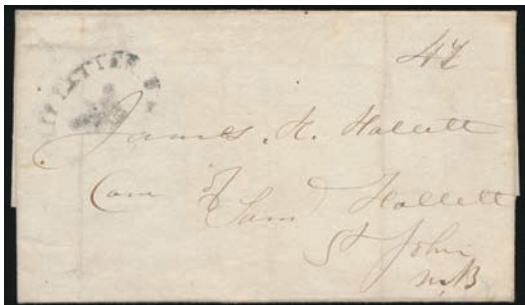 LETTER
James. H. Hallett
Care of
Saml Hallett
St John
N,B